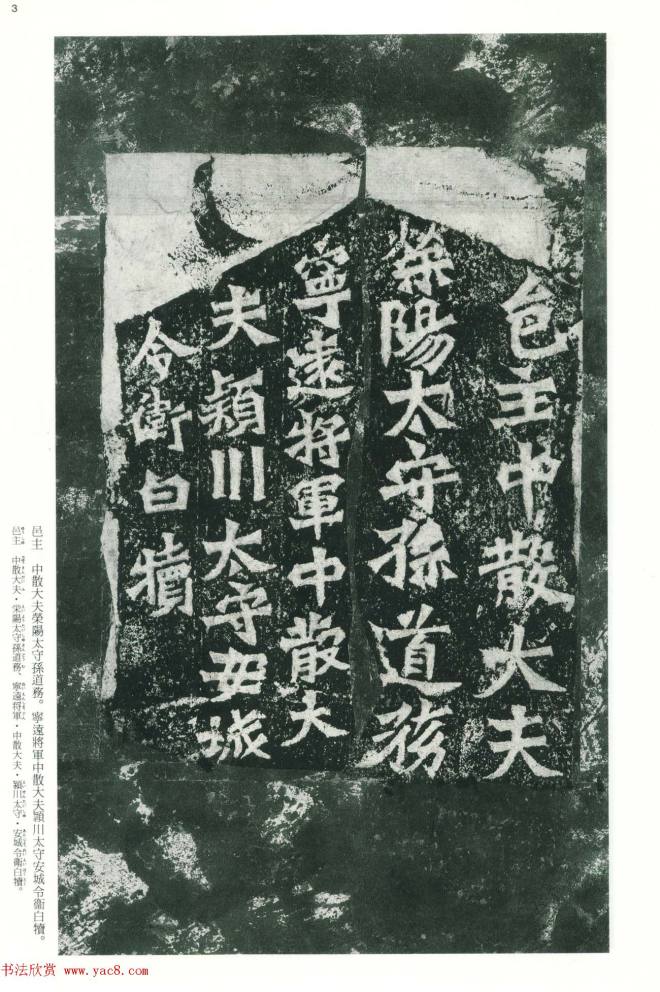 3
邑主中散大夫
滎陽太守孫道務
寧遠將軍中散大
夫潁川太守安城
令衛白犢
邑主　中散大夫滎陽太守孫道務。寧遠將軍中散大夫潁川太守安城令衞白犢。
邑主　中散大夫・栄陽太守孫道務、寧遠将軍・中散大夫・潁川太守・安城令衞白犢。
书法欣赏 www.yac8.com